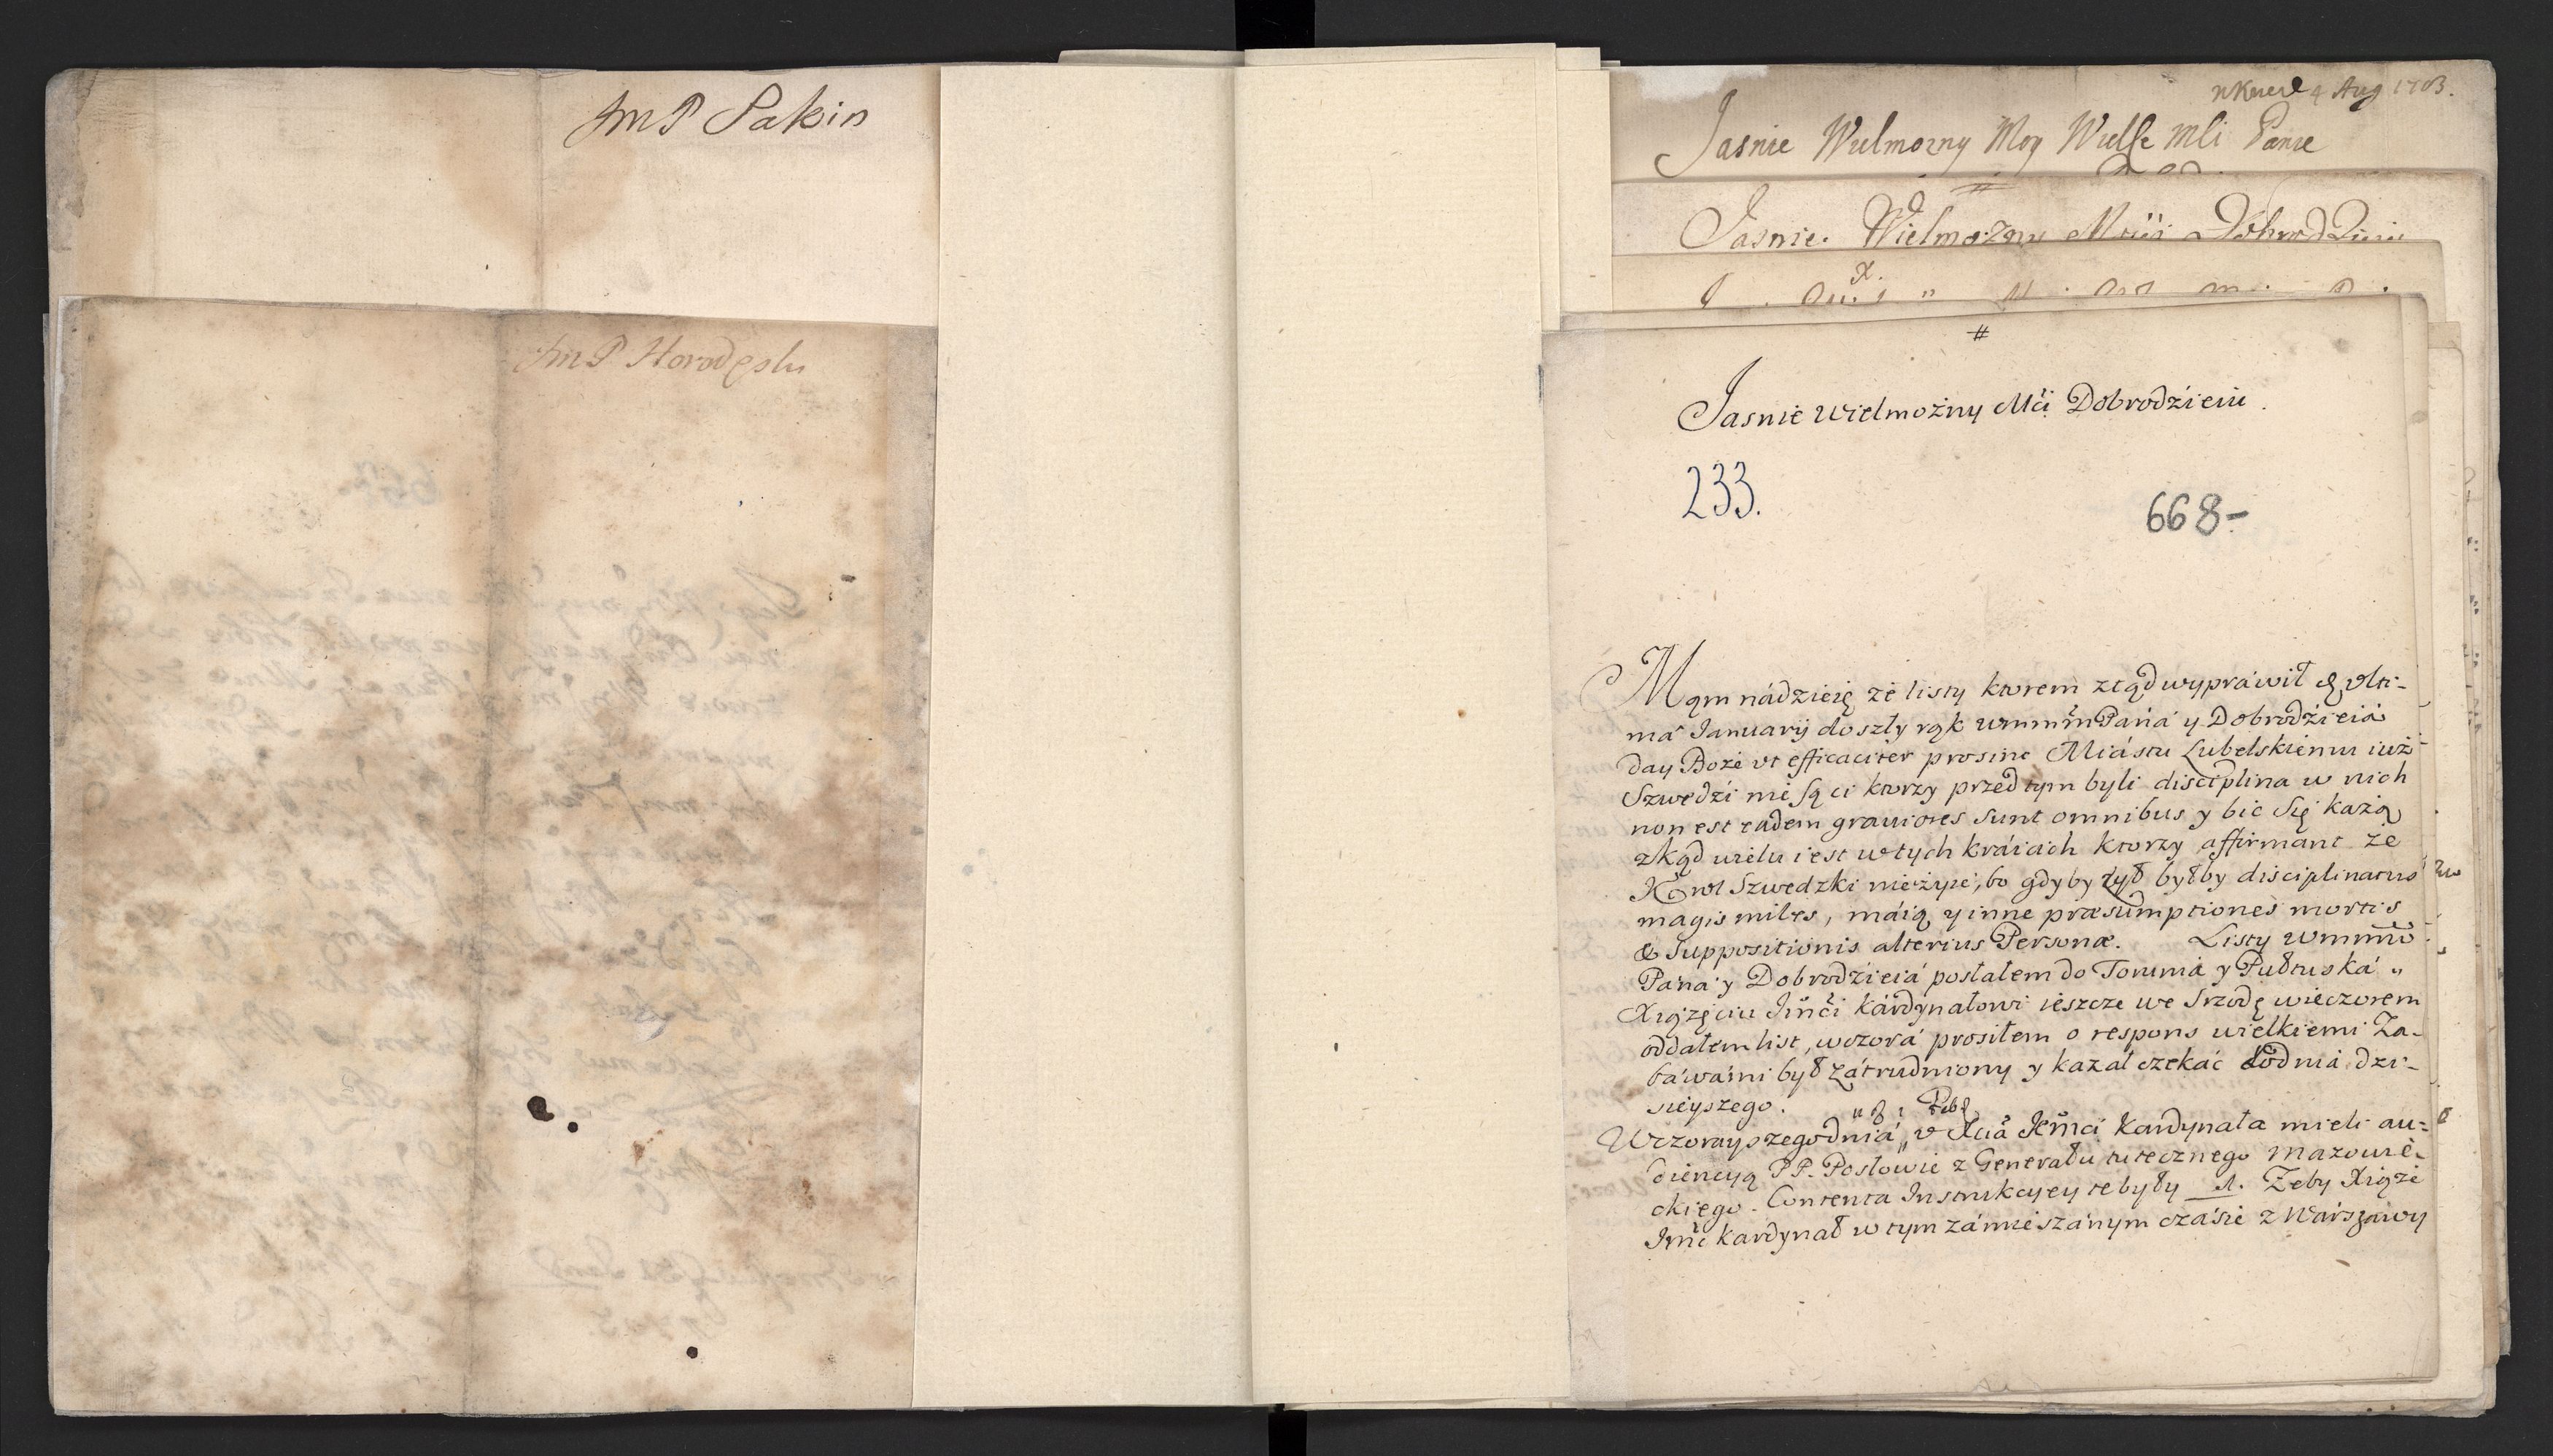 JmP Sakin
JmP Horod
n 4 Aug 1703.
Jasnie Wielmozny Moy Wielce Mci Panie
Jasnie Wielmozny Mcii Dobrodzieiu
#
Jasnie Wielmożny Mći Dobrodźieiu.
233.
668-
Mąm nádzieię że listy ktorem ztąd wypráwił d. vlti-
ma Januarij doszły rąk Wmm Páná y Dobrodźieiá
day Boże vt efficaciter prosint Miástu Lubelskiemu iuż
Szwedźi nie są ci ktorzy przed tym byli disciplina w nich
non est eadem grauiores sunt omnibus y bić się każą
zkąd wielu iest w tych kráiách ktorzy affirmant że
Krol Szwedzki nieżyie, bo gdyby żył byłby disciplinatus
magis miles, máią y inne præsumptiones mortis
& suppositionis alterius Personæ. Listy Wmm
Páná y Dobrodźieiá posłałem do Torunia y Pułtuská
Xiążęciu Jmći Kárdynałowi ieszcze we Srzodę wieczorem
oddałem list, wczorá prosiłem o respons wielkiemi Za-
báwámi był zátrudniony y kazał czekáć do dniá dzi-
sieyszego.
d. 1 Feb.
Wczorayszego dniá v Xciá Jemći Kardynała mieli au-
diencyą PP. Posłowie z Generału tutecznego Mazowie-
ckiego. Contenta Instrukcyey te były 1. Żeby Xiąże
Jmć Kardynał w tym zámieszánym czásie z Wárszáwy